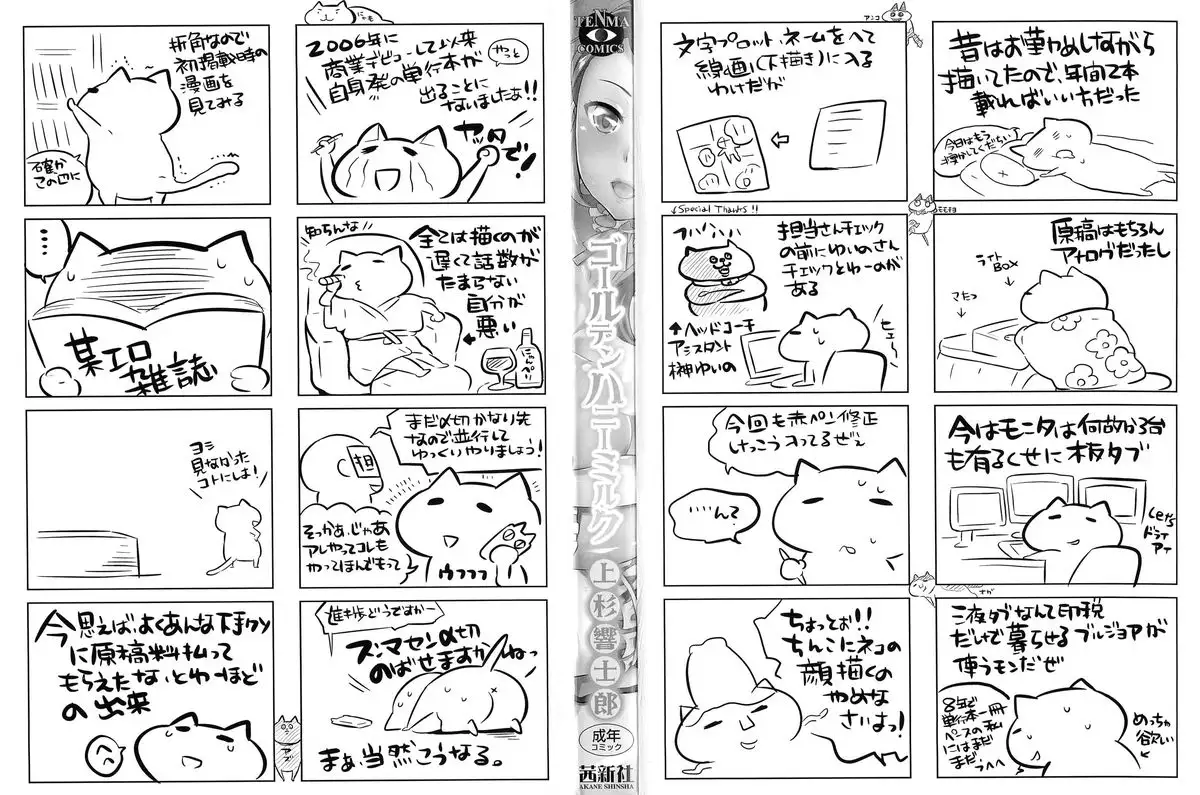 昔はお勤めしながら
描いてたので、年間2本
載ればいい方だった
今日はもう
原稿はもちろん
アナログだったし
ライト
BOX
今はモニタは何故か3台
も有るくせに板タブ
液タブなんて印税
だけで暮らせるブルジョアが
使うモンだぜ
めっちゃ
欲い
8年で
単行本一冊
ペースの私
にはまだ
まだうへへ
アンコ
文字プロット、ネームをへて
線画(下描き)に入る
わけだが
↓Special Thanks!!
担当さんチェック
の前にゆいのさん
チェックとゆーのが
ある
↑ヘッドコーチ
アシスタント
榊ゆいの
ヒェ〜
今回も赤ペン修正
けっこう入ってるぜぇ
……んて?
ちょっとお!!
ちんこにネコの
顔描くの
やめな
さいよっ!
TENMA
COMICS
ゴールデンハニーミルク
上杉響士郎
成年
コミック
茜新社
AKANE SHINSHA
にゃも
2006年に
商業デビューして以来
やっと
自身発の単行本が
出ることに
なりましたぁ!!
ヤッタ
で!
知らんな
全ては描くのが
遅くて話数が
たまらない
自分が
悪い
まだ〆切かなり先
なので並行して
ゆっくりやりましょう!
担
そっかぁ、じゃあ
アレやってコレも
やってほんでもって
ウフフフ
進チ歩どうですかー
スンマセン〆切
のばせますかねっ
まぁ、当然こうなる。
折角なので
初掲載時の
漫画を
見てみる
確か
この辺に
…
某エロ
雑誌
ヨシ
見なかった
コトにしよ!
今思えば、よくあんな下手クソ
に原稿料払って
もらえたな、とゆーほど
の出来
へへ